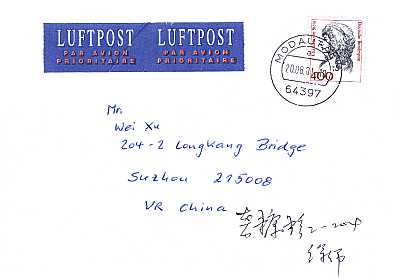 LUFTPOST LUFTPOST
PAR AVION PAR AVION
PRIORITAIRE PRIORITAIRE
MODAUTAL
20.08.01
64397
400
Mr.
Wei Xu
204-2 Longkang Bridge
Suzhou 215008
VR China
2-204